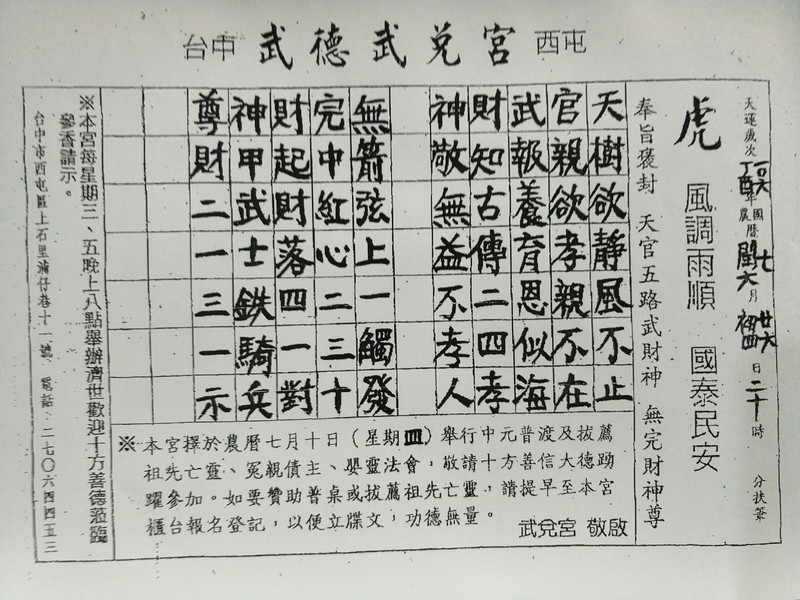 台中 武德武兌宮 西屯
天運歲次 一〇六 丁酉年 國曆 農曆 七 閏六月 廿六 初四 日 二十時 分扶筆
虎 風調雨順 國泰民安
奉旨褒封 天官五路武財神 無完財神尊
天樹欲靜風不止
官親欲孝親不在
武報養育恩似海
財知古傳二四孝
神敬無益不孝人
無箭弦上一觸發
完中紅心二三十
財起財落四一對
神甲武士鉄騎兵
尊財二一三一示
※本宮擇於農曆七月十日(星期四)舉行中元普渡及拔薦
祖先亡靈、冤親債主、嬰靈法會,敬請十方善信大德踴
躍參加。如要贊助普桌或拔薦祖先亡靈,請提早至本宮
櫃台報名登記,以便立牒文,功德無量。
武兌宮 敬啟
※本宮每星期三、五晚上八點舉辦濟世歡迎十方善德蒞臨
參香請示。
台中市西屯區上石里湳仔巷十一號 電話:二七〇六四四五三